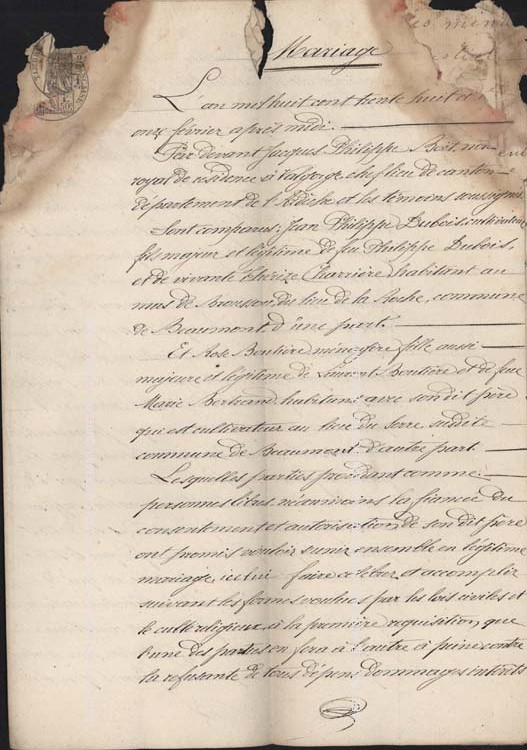 Mariage
L'an mil huit cent trente huit et
onze février après midi.
Par devant Jacques Philippe Boit, not
royal de résidence à Valgorge, chef lieu de canton
département de l'Ardèche et les témoins soussignés
Sont comparus: Jean Philippe Dubois, cultivateur
fils majeur et légitime de feu Philippe Dubois,
et de vivante Thérèze Charrière, habitant au
mas de du lieu de la Roche, commune
de Beaumont, d'une part.
Et Rose Boutière ménagère fille aussi
majeure et légitime de Laurent Boutière et de feue
Marie Bertrand, habitant avec son dit père
qui est cultivateur au lieu du Serre susdite
commune de Beaumont, d'autre part.
Lesquelles parties procédant comme
personnes libres, néanmoins la fiancée du
consentement et autorisation de son dit père
ont promis vouloir s'unir ensemble en légitime
mariage, icelui faire célébrer et accomplir
suivant les formes voulues par les lois civiles et
le culte religieux à la première réquisition que
l'une des parties en fera à l'autre à peine contre
la refusante de tous dépens dommages intérêts